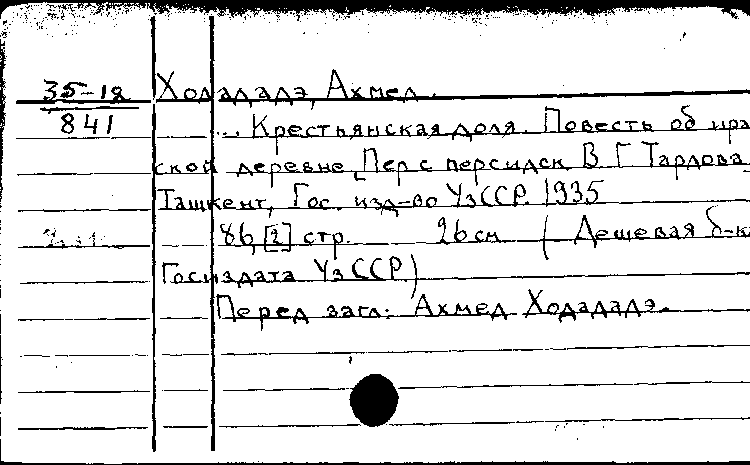 35-18 Ходададэ, Ахмед.
841 ... Крестьянская доля. Повесть об ира
ской деревне. Пер с персидск В Г Тардова
Ташкент, Гос. изд-во УзССР. 1935
86, [2] стр. 26 см (Дешевая б-к
Госиздата УзССР)
Перед загл: Ахмед Ходададэ.